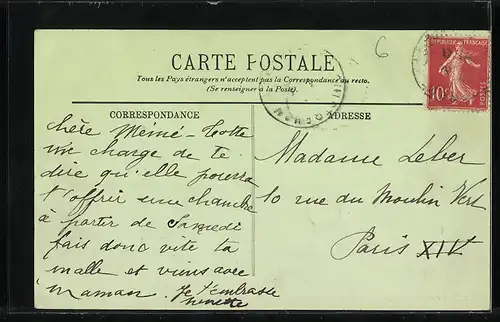 CARTE POSTALE
Tous les Pays étrangers n'acceptent pas la Correspondance au recto.
(Se renseigner à la Poste).
CORRESPONDANCE
chère Mémé - Totte
me charge de te
dire qu'elle pourra
t'offrir une chambre
à partir de Samedi
fais donc vite ta
malle et viens avec
maman. Je t'embrasse
ADRESSE
Madame Leber
10 rue du Moulin Vert
Paris XIV
6
REPUBLIQUE FRANÇAISE
10c
POSTES